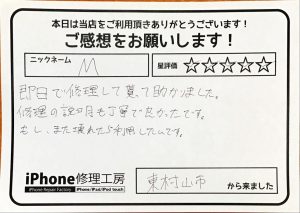 本日は当店をご利用頂きありがとうございます！
ご感想をお願いします！
ニックネーム M 星評価 ☆☆☆☆☆
即日で修理して貰て助かりました。
修理の説明も丁寧で良かったです。
もし、また壊れたら利用したいです。
iPhone修理工房 東村山市 から来ました
iPhone Repair Factory iPhone/iPad/iPod touch